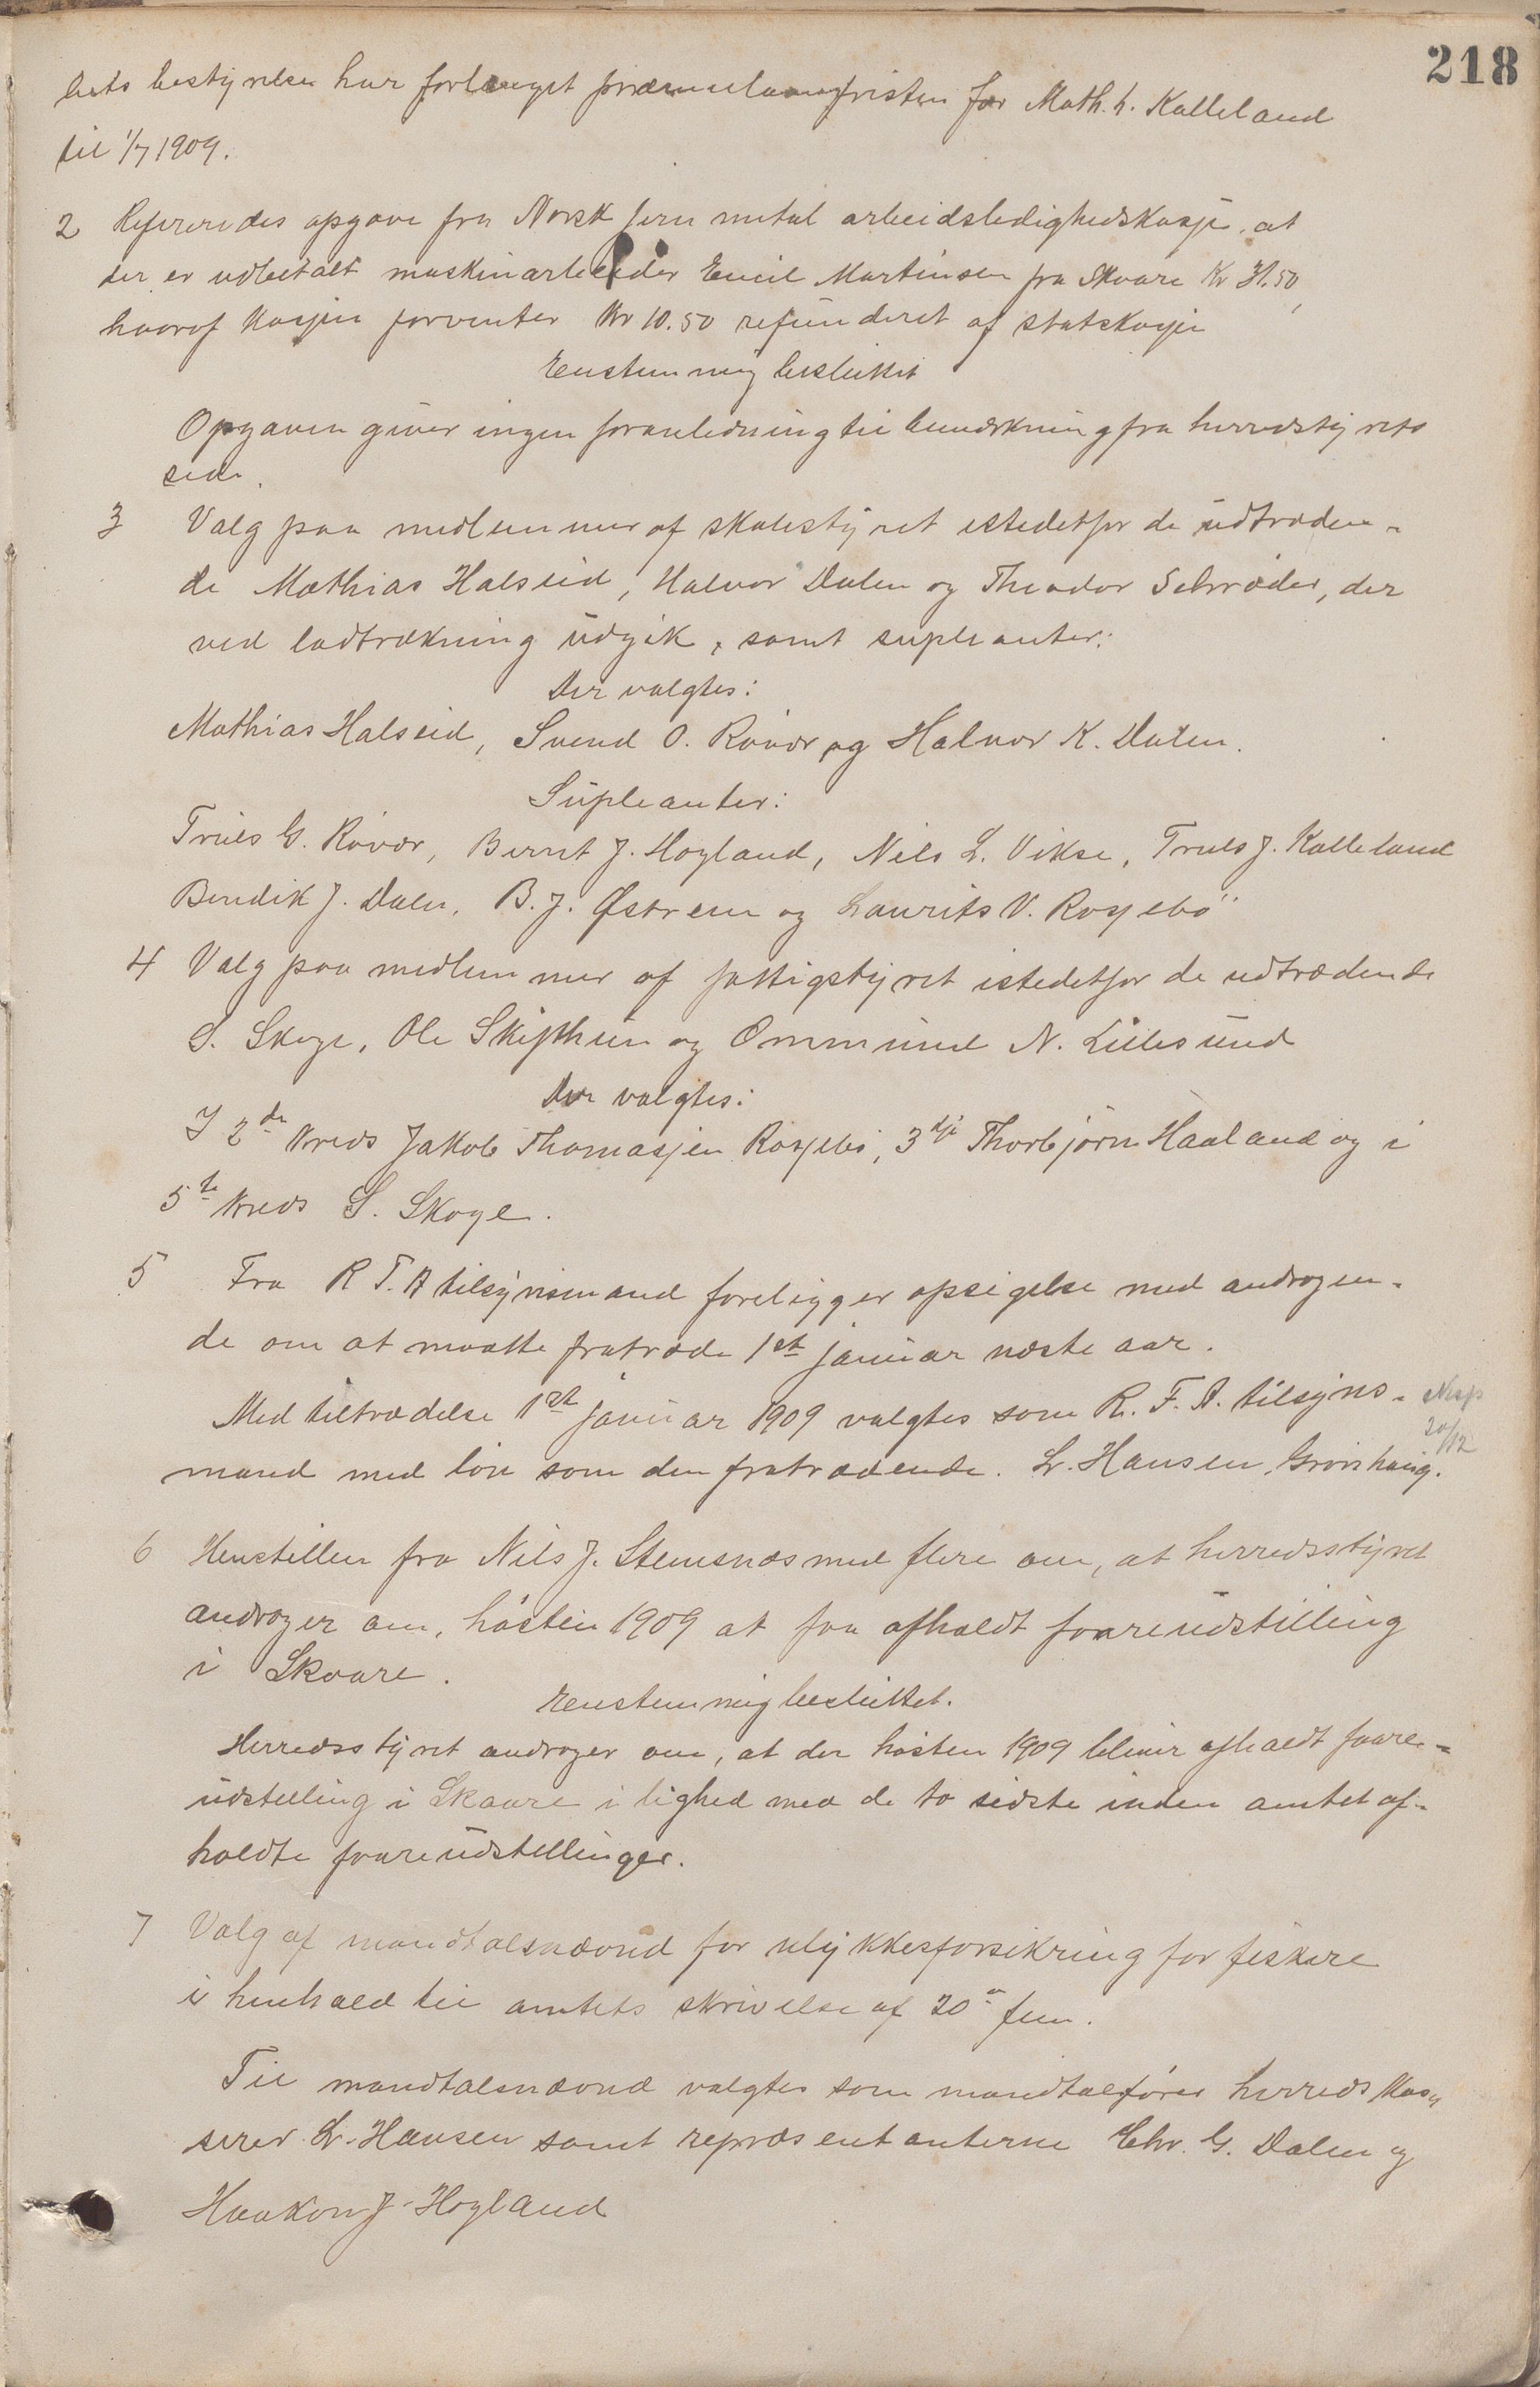 218
bets bestyrelse har forlænget præmielaansfristen for Math. L. Kalleland
til 1/7 1909.
2 Refereredes opgave fra Norsk jern metal arbeidsledighedskasse, at
der er udbetalt maskinarbeider Emil Martinsen fra Skaare Kr 31.50,
hvoraf kassen forventer Kr 10.50 refunderet af statskassen
Enstemmig besluttet
Opgaven giver ingen foranledning til bemærkning fra herredstyrets
side.
3 Valg paa medlemmer af skolestyret istedetfor de udtræden-
de Mathias Halseid, Halvor Dalen og Theodor Schrøder, der
ved lodtrækning udgik, samt supleanter:
Der valgtes:
Mathias Halseid, Svend O. Røvær og Halvor K. Dalen.
Supleanter:
Truls G. Røvær, Bernt J. Høyland, Nils L. Vikse, Truls J. Kalleland
Bendik J. Dalen, B. J. Østrem og Laurits V. Rossebø
4 Valg paa medlemmer af fattigstyret istedetfor de udtrædende
S. Skoge, Ole Skipthun og Ommund N. Lillesund
Der valgtes:
I 2de kreds Jakob Thomassen Rossebø, 3dje Thorbjørn Haaland og i
5te kreds S. Skoge.
5 Fra R T. A tilsynsmand foreligger opsigelse med andragen-
de om at maatte fratræde 1st januar næste aar.
Med tiltrædelse 1st januar 1909 valgtes som R. F. A. tilsyns-
20/12
mand med løn som den fratrædende. L. Hansen, Grønhaug.
6 Henstillen fra Nils J. Stemsnæs med flere om, at herredsstyret
andrager om, høsten 1909 at faa afholdt faareudstilling
i Skaare.
Enstemmig besluttet.
Herredsstyret andrager om, at der høsten 1909 bliver afholdt faare-
udstilling i Skaare i lighed med de to sidste inden amtet af-
holdte faareudstillinger.
7 Valg af mandtalsnævnd for ulykkesforsikring for fiskere
i henhold til amtets skrivelse af 20de
Til mandtalsnævnd valgtes som mandtalfører herredskas-
serer L. Hansen samt repræsentanterne Chr. G. Dalen og
Haakon J. Høyland